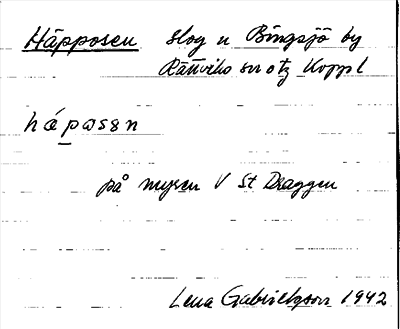 Häpposen slog n Bingsjö by
Rättviks sn o tg Koppl
hápasən
på myren V St Draggen
Lena Gabrielsson 1942